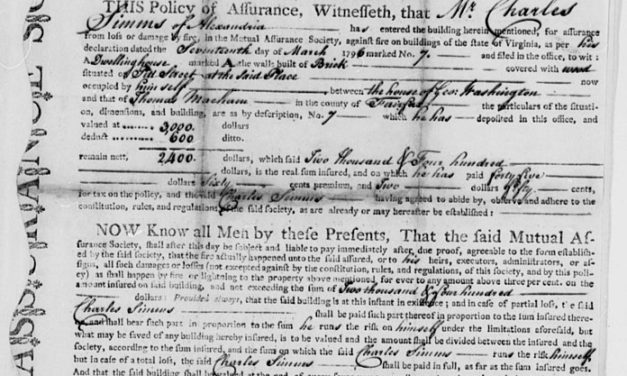 ASSURANCE SO
THIS Policy of Assurance, Witnesseth, that Mr. Charles
Simms of Alexandria has entered the building herein mentioned, for assurance
from loss or damage by fire, in the Mutual Assurance Society, against fire on buildings of the state of Virginia, as per his
declaration dated the Seventeenth day of March 1796 marked No. 7. and filed in the office, to wit:
A Dwellinghouse marked A the walls built of Brick covered with wood
situated on Street at the said Place now
occupied by himself between the house of Geo: Washington
and that of Thomas in the county of Fairfax the particulars of the situati-
on, dimensions, and building, are as by description, No. 7 which he has deposited in this office, and
valued at 3,000 dollars
deduct 600 ditto.
remain nett, 2,400 dollars, which said Two thousand & Four hundred
dollars, is the real sum insured, and on which he has paid forty five
dollars Sixty cents premium, and Two dollars fifty cents,
for tax on the policy, and the said Charles Simms having agreed to abide by, observe and adhere to the
constitution, rules, and regulations of the said society, as are already or may hereafter be established:
NOW Know all Men by these Presents, That the said Mutual As-
surance Society, shall after this day be subject and liable to pay immediately after, due proof, agreeable to the form establish-
ed by the said society, that the fire actually happened unto the said assured, or to his heirs, executors, administrators, or as-
signs, all such damages or losses (not excepted against by the constitution, rules, and regulations, of this society, and by this poli-
cy) as shall happen by fire or lightening to the property above mentioned, for ever to any amount above three per cent. on the
amount insured on said building, and not exceeding the sum of Two thousand & four hundred
dollars: Provided always, that the said building is at this instant in existence; and in case of partial loss, the said
Charles Simms shall be paid such part thereof in proportion to the sum insured there-
and shall bear such part in proportion to the sum he runs the risk on himself under the limitations aforesaid, but
what may be saved of any building hereby insured, is to be valued and the amount shall be divided between the insured and the
society, according to the sum insured, and the sum on which the said Charles Simms runs the risk himself,
but in case of a total loss, the said Charles Simms shall be paid in full, as far as the sum insured goes.
And that the said building shall be valued at the end of every